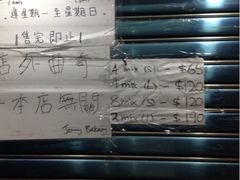 逢星期一至星期日
(售完即止)
店外曲奇
本店無關
Jenny Bakery
4 mix (s) - $65
4 mix (L) - $120
8 mix (s) - $120
8 mix (L) - $190